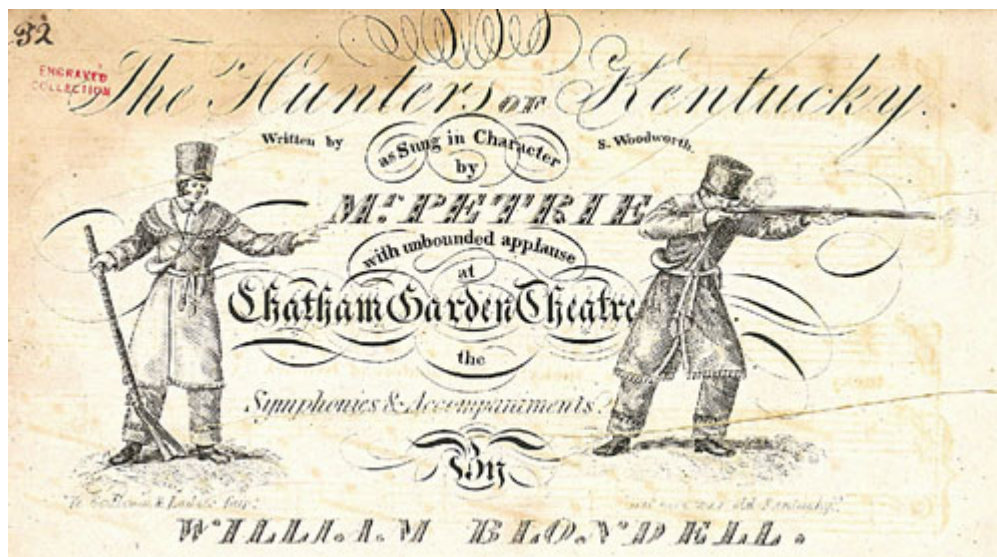 32
ENGRAVED
COLLECTION
The Hunters OF Kentucky.
Written by
as Sung in Character
by
S. Woodworth.
Mr. PETRIE
with unbounded applause
at
Chatham Garden Theatre
the
Symphonies & Accompaniments
By
"Ye Gentlemen & Ladies fair."
old Kentucky."
WILLIAM BLONDELL.